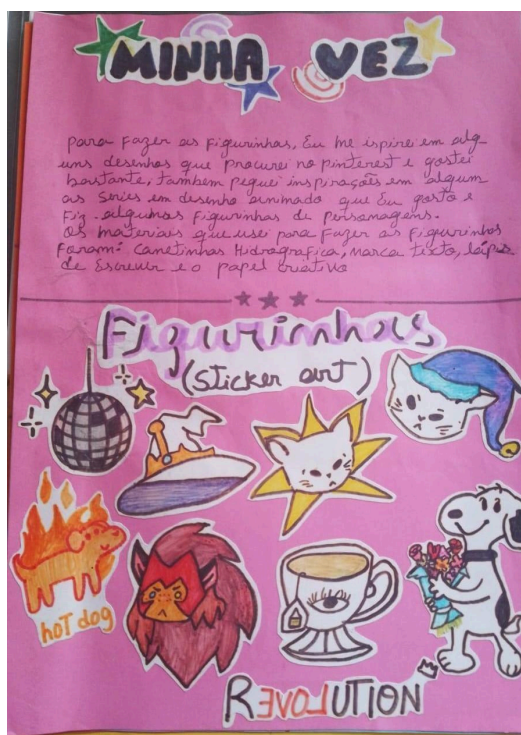 MINHA VEZ
para Fazer as Figurinhas, Eu me ispirei em alg-
uns desenhos que procurei no pinterest e gostei
bastante, também peguei inspirações em algum
as Séries em desenho animado que Eu gosto e
Fiz algumas Figurinhas de personagens.
Os materiais que usei para Fazer as Figurinhas
Foram: Canetinhas Hidrografica, marca texto, lápis
de Escrever e o papel criativo
Figurinhas
(sticker art)
hoT dog
REVOLUTION